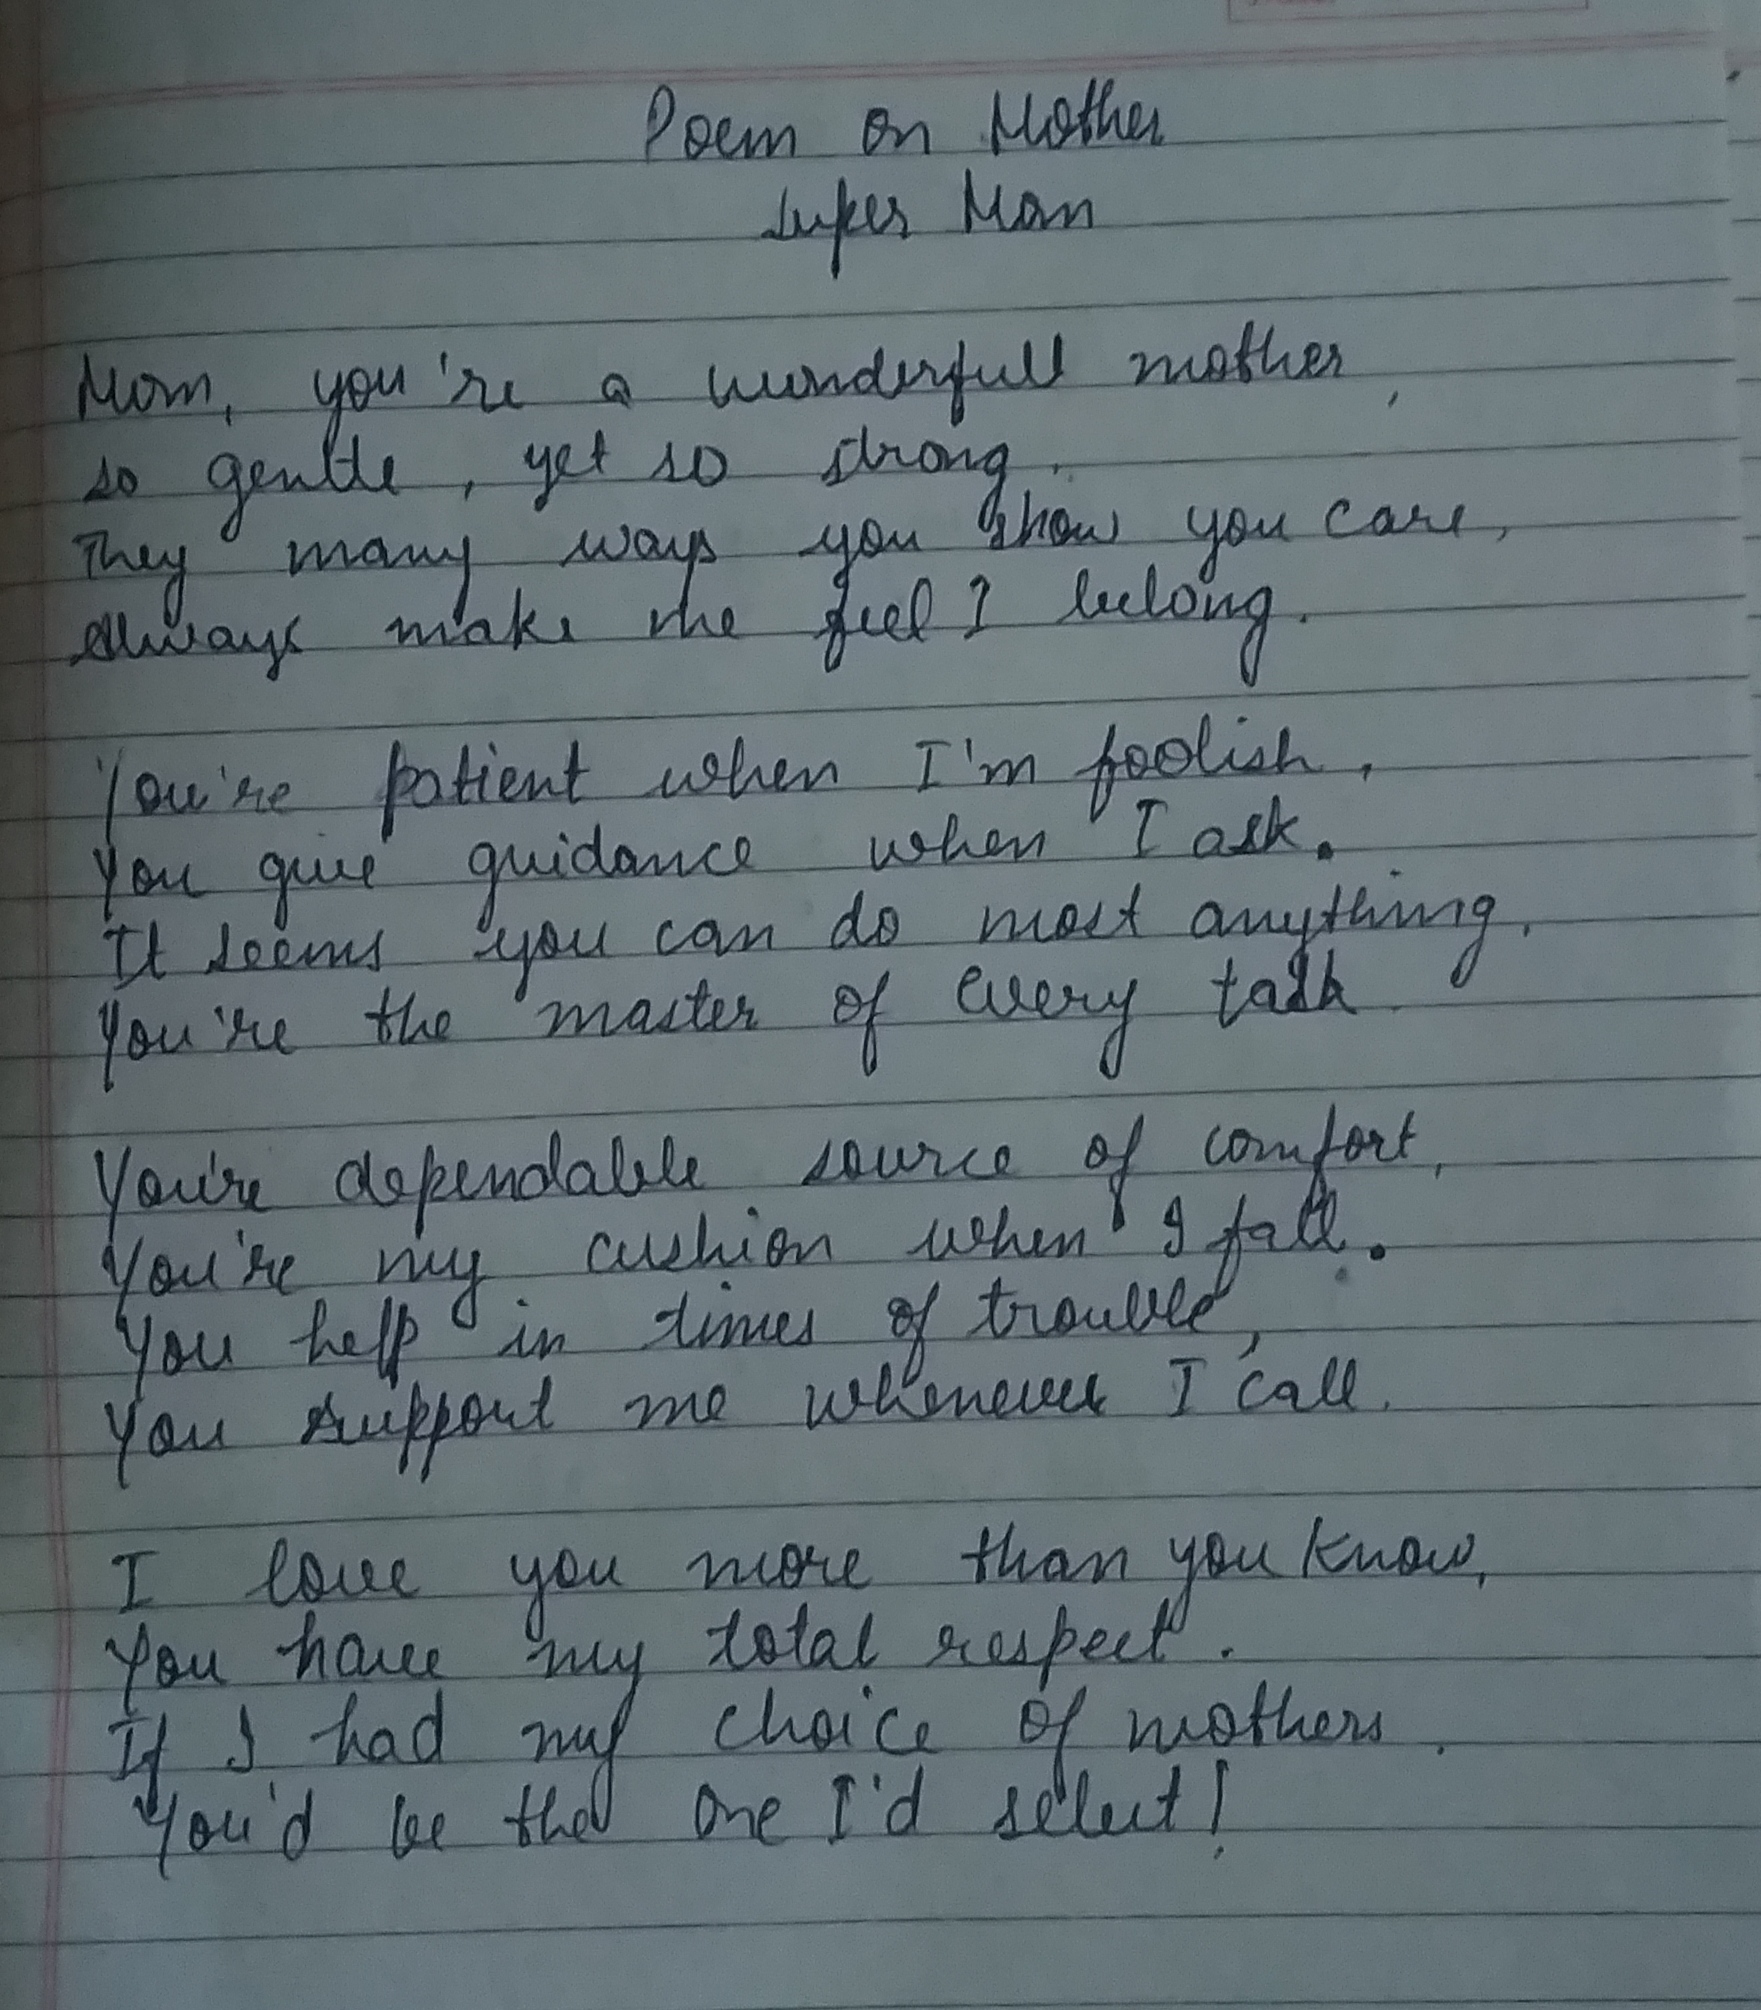 Poem on Mother
Super Mom
Mom, you're a wunderfull mother,
so gentle, yet so strong.
They many ways you show you care,
Always make me feel I belong.
You're patient when I'm foolish,
You give guidance when I ask.
It seems you can do most anything,
You're the master of every task
You're dependable source of comfort,
You're my cushion when I fall.
You help in times of trouble,
You support me whenever I call.
I love you more than you know,
You have my total respect.
If I had my choice of mothers.
You'd be the one I'd select!